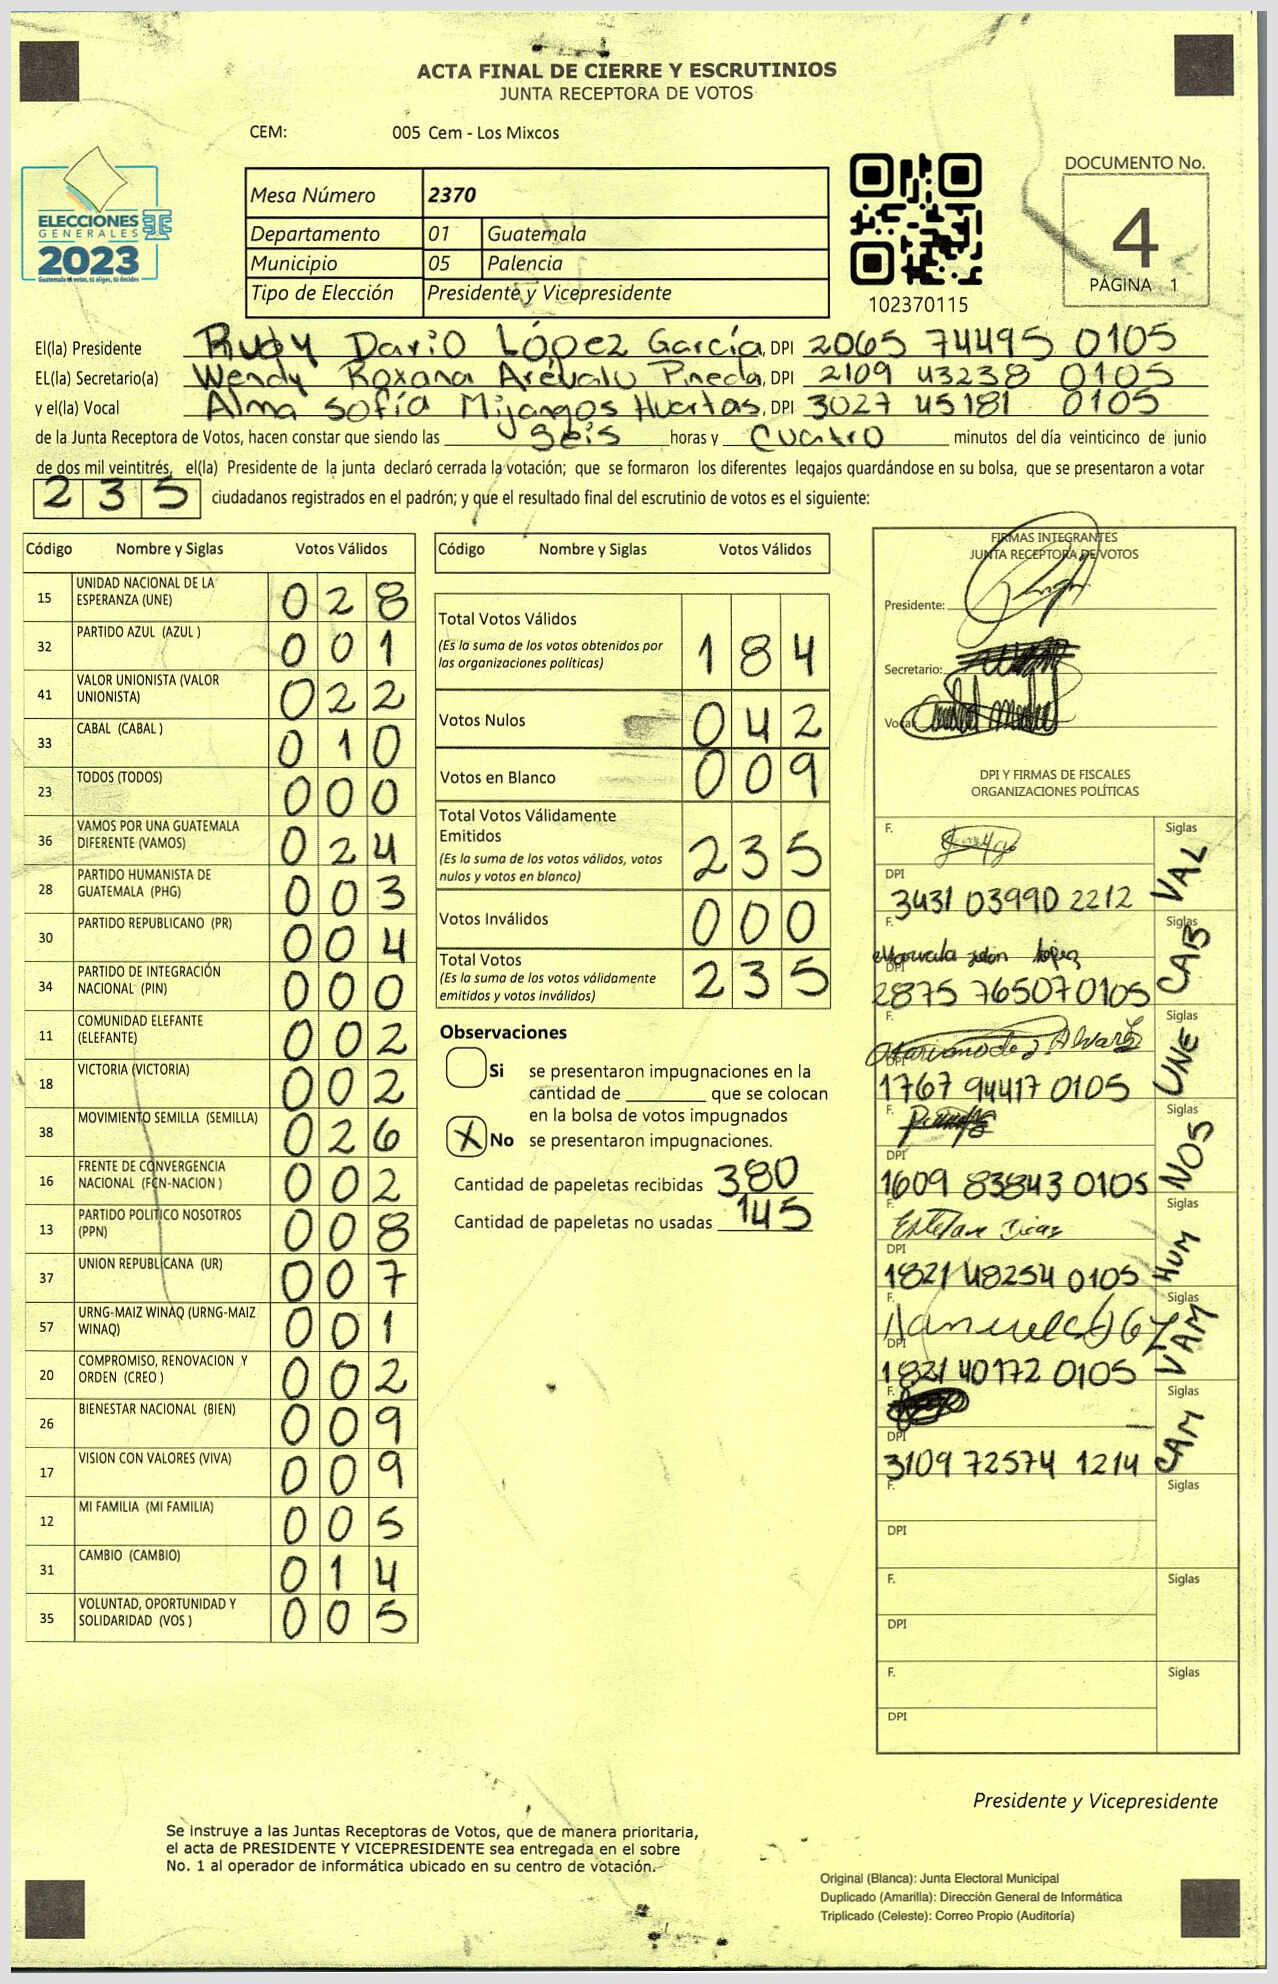 ACTA FINAL DE CIERRE Y ESCRUTINIOS
JUNTA RECEPTORA DE VOTOS
CEM: 005 Cem - Los Mixcos
ELECCIONES
GENERALES
2023
Guatemala tú votas, tú eliges, tú decides
Mesa Número 2370
Departamento 01 Guatemala
Municipio 05 Palencia
Tipo de Elección Presidente y Vicepresidente
102370115
DOCUMENTO No.
4
PÁGINA 1
El(la) Presidente Rudy Dario López García, DPI 2065 74495 0105
EL(la) Secretario(a) Wendy Roxana Arévalo Pineda, DPI 2109 43238 0105
y el(la) Vocal Alma Sofía Mijangos Huertas, DPI 3027 45181 0105
de la Junta Receptora de Votos, hacen constar que siendo las seis horas y cuatro minutos del día veinticinco de junio
de dos mil veintitrés, el(la) Presidente de la junta declaró cerrada la votación; que se formaron los diferentes legajos quardándose en su bolsa, que se presentaron a votar
235 ciudadanos registrados en el padrón; y que el resultado final del escrutinio de votos es el siguiente:
Código Nombre y Siglas Votos Válidos
15 UNIDAD NACIONAL DE LA ESPERANZA (UNE) 028
32 PARTIDO AZUL (AZUL ) 001
41 VALOR UNIONISTA (VALOR UNIONISTA) 022
33 CABAL (CABAL ) 010
23 TODOS (TODOS) 000
36 VAMOS POR UNA GUATEMALA DIFERENTE (VAMOS) 024
28 PARTIDO HUMANISTA DE GUATEMALA (PHG) 003
30 PARTIDO REPUBLICANO (PR) 004
34 PARTIDO DE INTEGRACIÓN NACIONAL (PIN) 000
11 COMUNIDAD ELEFANTE (ELEFANTE) 002
18 VICTORIA (VICTORIA) 002
38 MOVIMIENTO SEMILLA (SEMILLA) 026
16 FRENTE DE CONVERGENCIA NACIONAL (FCN-NACION ) 002
13 PARTIDO POLITICO NOSOTROS (PPN) 008
37 UNION REPUBLICANA (UR) 007
57 URNG-MAIZ WINAQ (URNG-MAIZ WINAQ) 001
20 COMPROMISO, RENOVACION Y ORDEN (CREO ) 002
26 BIENESTAR NACIONAL (BIEN) 009
17 VISION CON VALORES (VIVA) 009
12 MI FAMILIA (MI FAMILIA) 005
31 CAMBIO (CAMBIO) 014
35 VOLUNTAD, OPORTUNIDAD Y SOLIDARIDAD (VOS ) 005
Código Nombre y Siglas Votos Válidos
Total Votos Válidos 184
(Es la suma de los votos obtenidos por
las organizaciones políticas)
Votos Nulos 042
Votos en Blanco 009
Total Votos Válidamente
Emitidos 235
(Es la suma de los votos válidos, votos
nulos y votos en blanco)
Votos Inválidos 000
Total Votos 235
(Es la suma de los votos válidamente
emitidos y votos inválidos)
Observaciones
Si se presentaron impugnaciones en la
cantidad de que se colocan
en la bolsa de votos impugnados
X No se presentaron impugnaciones.
Cantidad de papeletas recibidas 380
Cantidad de papeletas no usadas 145
FIRMAS INTEGRANTES
JUNTA RECEPTORA DE VOTOS
Presidente:
Secretario:
Vocal:
DPI Y FIRMAS DE FISCALES
ORGANIZACIONES POLÍTICAS
F. Siglas
DPI 3431 03990 2212 VAL
F. Siglas
DPI 2875 76507 0105 CAB
F. Siglas
DPI 1767 94417 0105 UNE
F. Siglas
DPI 1609 83843 0105 NOS
F. Siglas
DPI 1821 48254 0105 HUM
F. Siglas
DPI 1821 40172 0105 VAM
F. Siglas
DPI 3109 72574 1214 CAM
F. Siglas
DPI
F. Siglas
DPI
F. Siglas
DPI
Presidente y Vicepresidente
Se instruye a las Juntas Receptoras de Votos, que de manera prioritaria,
el acta de PRESIDENTE Y VICEPRESIDENTE sea entregada en el sobre
No. 1 al operador de informática ubicado en su centro de votación.
Original (Blanca): Junta Electoral Municipal
Duplicado (Amarilla): Dirección General de Informática
Triplicado (Celeste): Correo Propio (Auditoría)